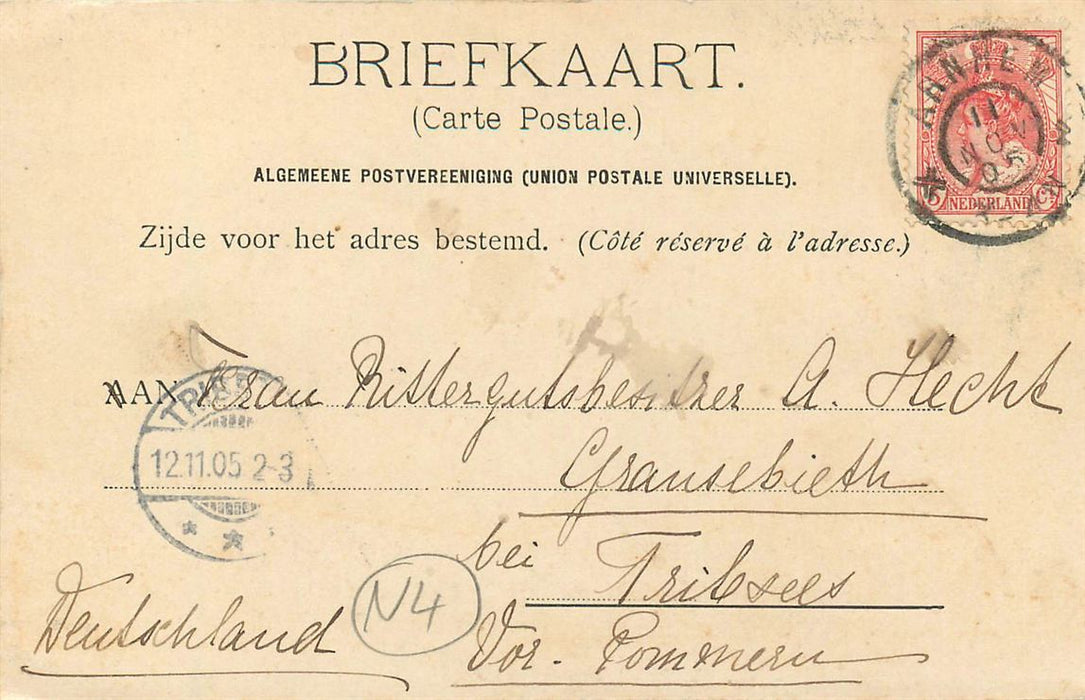 BRIEFKAART.
(Carte Postale.)
ALGEMEENE POSTVEREENIGING (UNION POSTALE UNIVERSELLE).
Zijde voor het adres bestemd. (Côté réservé à l'adresse.)
ARNHEM
11 NOV 05
5 NEDERLAND Ct
AAN Frau Rittergutsbesitzer A. Hecht
TRIBSEES
12.11.05 2-3
Gransebieth
bei Tribsees
Deutschland
N4
Vor. Pommern